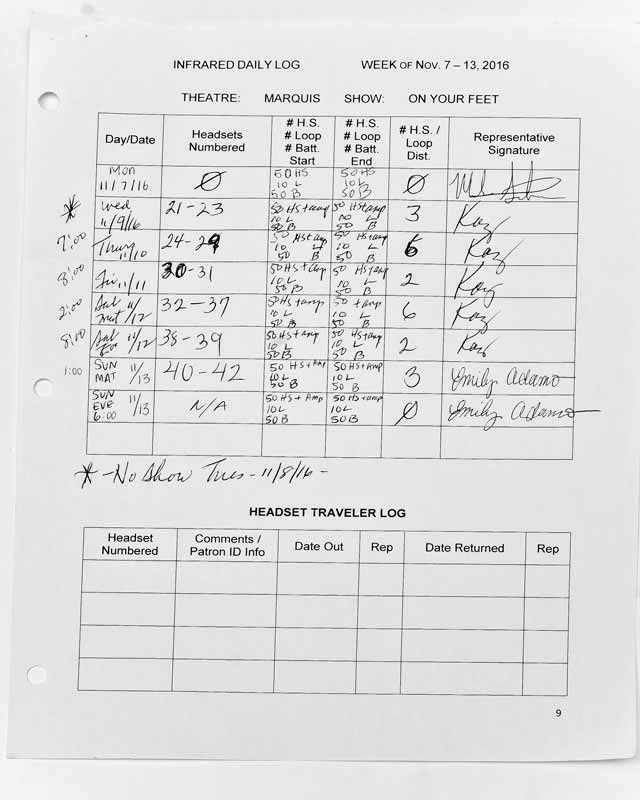 INFRARED DAILY LOG WEEK OF NOV. 7 – 13, 2016
THEATRE: MARQUIS SHOW: ON YOUR FEET
Day/Date Headsets Numbered # H.S. # Loop # Batt. Start # H.S. # Loop # Batt. End # H.S. / Loop Dist. Representative Signature
Mon 11/7/16 Ø 50 HS 10 L 50 B 50 HS 10 L 50 B Ø
* Wed 11/9/16 21-23 50 HS+amp 10 L 50 B 50 HS+amp 10 L 50 B 3 Kay
7:00 Thurs 11/10 24-29 50 HS+amp 10 L 50 B 50 HS+amp 10 L 50 B 6 Kay
8:00 Fri 11/11 30-31 50 HS+amp 10 L 50 B 50 HS+amp 10 L 50 B 2 Kay
2:00 Sat mat 11/12 32-37 50 HS+amp 10 L 50 B 50 +amp 10 L 50 B 6 Kay
8:00 Sat Eve 11/12 38-39 50 HS+amp 10 L 50 B 50 HS+amp 10 L 50 B 2 Kay
1:00 SUN MAT 11/13 40-42 50 HS+Amp 10 L 50 B 50 HS+amp 10 L 50 B 3 Emily Adamo
SUN EVE 6:00 11/13 N/A 50 HS+Amp 10 L 50 B 50 HS+amp 10 L 50 B Ø Emily Adamo
* -No Show Tues - 11/8/16 -
HEADSET TRAVELER LOG
Headset Numbered Comments / Patron ID Info Date Out Rep Date Returned Rep
9